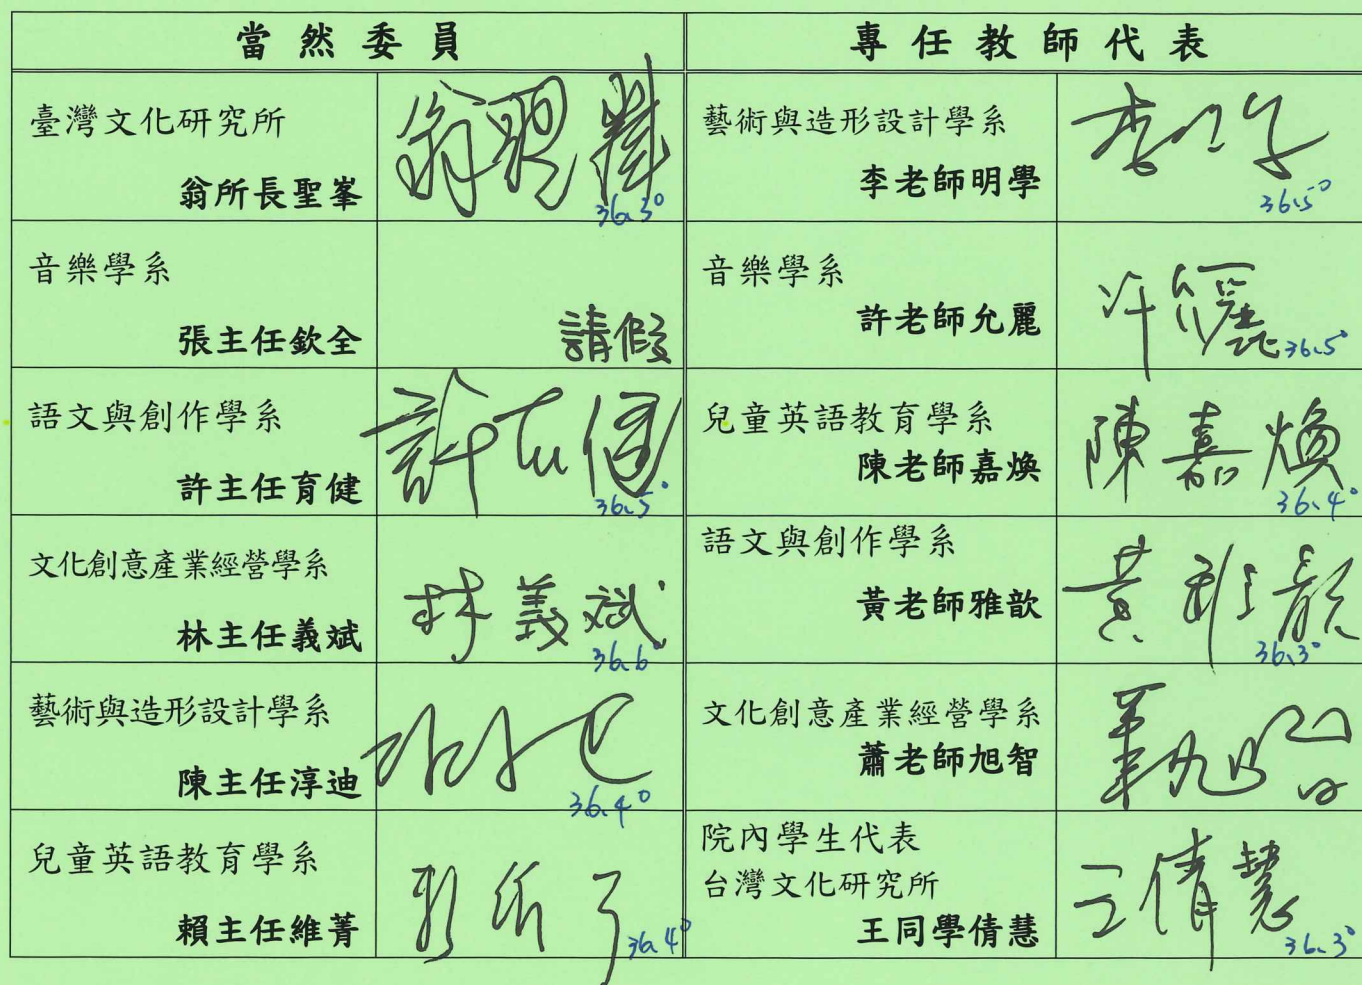 當然委員
專任教師代表
臺灣文化研究所
翁所長聖峯
36.3°
藝術與造形設計學系
李老師明學
36.5°
音樂學系
張主任欽全
請假
音樂學系
許老師允麗
36.5°
語文與創作學系
許主任育健
36.5°
兒童英語教育學系
陳老師嘉煥
陳嘉煥
36.4°
文化創意產業經營學系
林主任義斌
林義斌
36.6°
語文與創作學系
黃老師雅歆
36.3°
藝術與造形設計學系
陳主任淳迪
36.4°
文化創意產業經營學系
蕭老師旭智
兒童英語教育學系
賴主任維菁
36.4°
院內學生代表
台灣文化研究所
王同學倩慧
王倩慧
36.3°